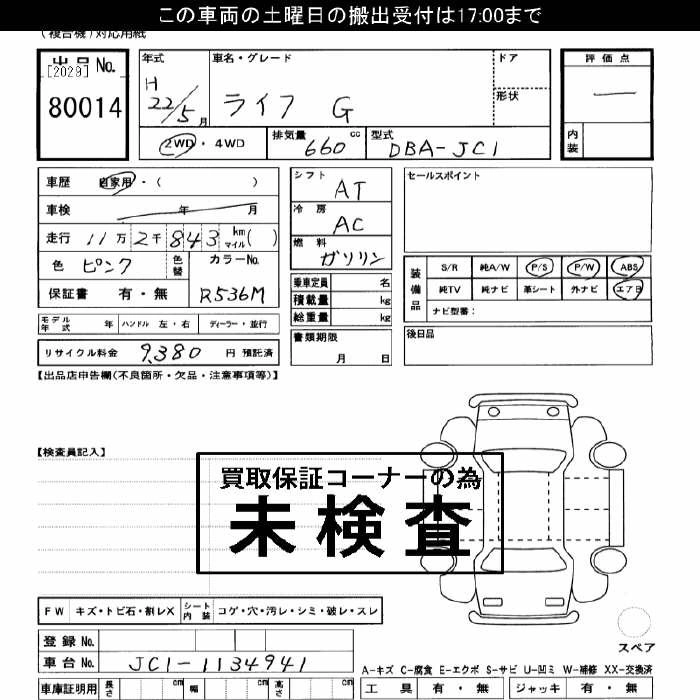 この車両の土曜日の搬出受付は17:00まで
(複合機)対応用紙
出品No.
[2029]
80014
年式
H
22/5月
車名・グレード
ライフ G
ドア
形状
評価点
―
内装
2WD・4WD
排気量 660 cc
型式 DBA-JC1
車歴 自家用・( )
車検 年 月
走行 11万 2千 843 km マイル( )
色 ピンク 色替 カラーNo.
保証書 有・無 R536M
モデル年式 年 ハンドル 左・右 ディーラー・並行
リサイクル料金 9,380 円 預託済
シフト AT
冷房 AC
燃料 ガソリン
乗車定員 名
積載量 kg
総重量 kg
書類期限
月 日
セールスポイント
装備品
S/R 純A/W P/S P/W ABS
純TV 純ナビ 革シート 外ナビ エアB
ナビ型番:
後日品
【出品店申告欄(不良箇所・欠品・注意事項等)】
【検査員記入】
買取保証コーナーの為
未検査
FW キズ・トビ石・割レX シート内装 コゲ・穴・汚レ・シミ・破レ・スレ
登録No.
車台No. JC1-1134941
スペア
A-キズ C-腐食 E-エクボ S-サビ U-凹ミ W-補修 XX-交換済
車庫証明用 長さ cm 幅 cm 高さ cm
工具 有・無 ジャッキ 有・無